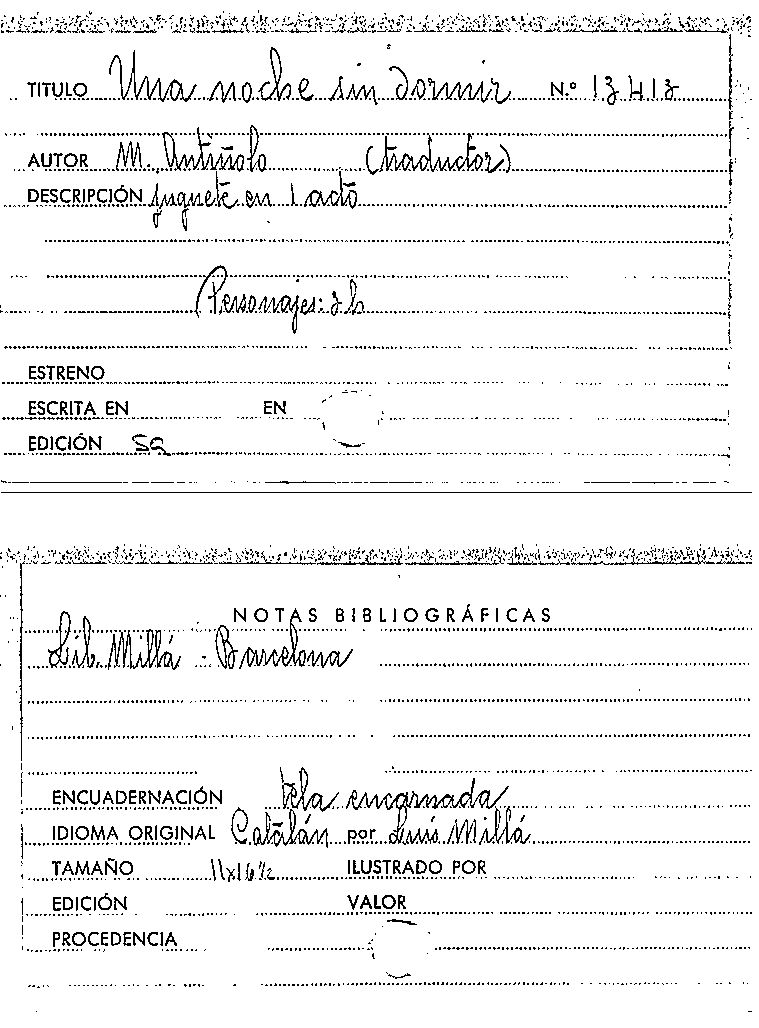 TITULO Una noche sin dormir N.º 13413
AUTOR M. Antiñolo (traductor)
DESCRIPCIÓN Juguete en 1 acto
Personajes: 2 h
ESTRENO
ESCRITA EN EN
EDICIÓN
NOTAS BIBLIOGRÁFICAS
Lib. Millá - Barcelona
ENCUADERNACIÓN tela encarnada
IDIOMA ORIGINAL Catalán por Luis Millá
TAMAÑO 11x16½ ILUSTRADO POR
EDICIÓN VALOR
PROCEDENCIA